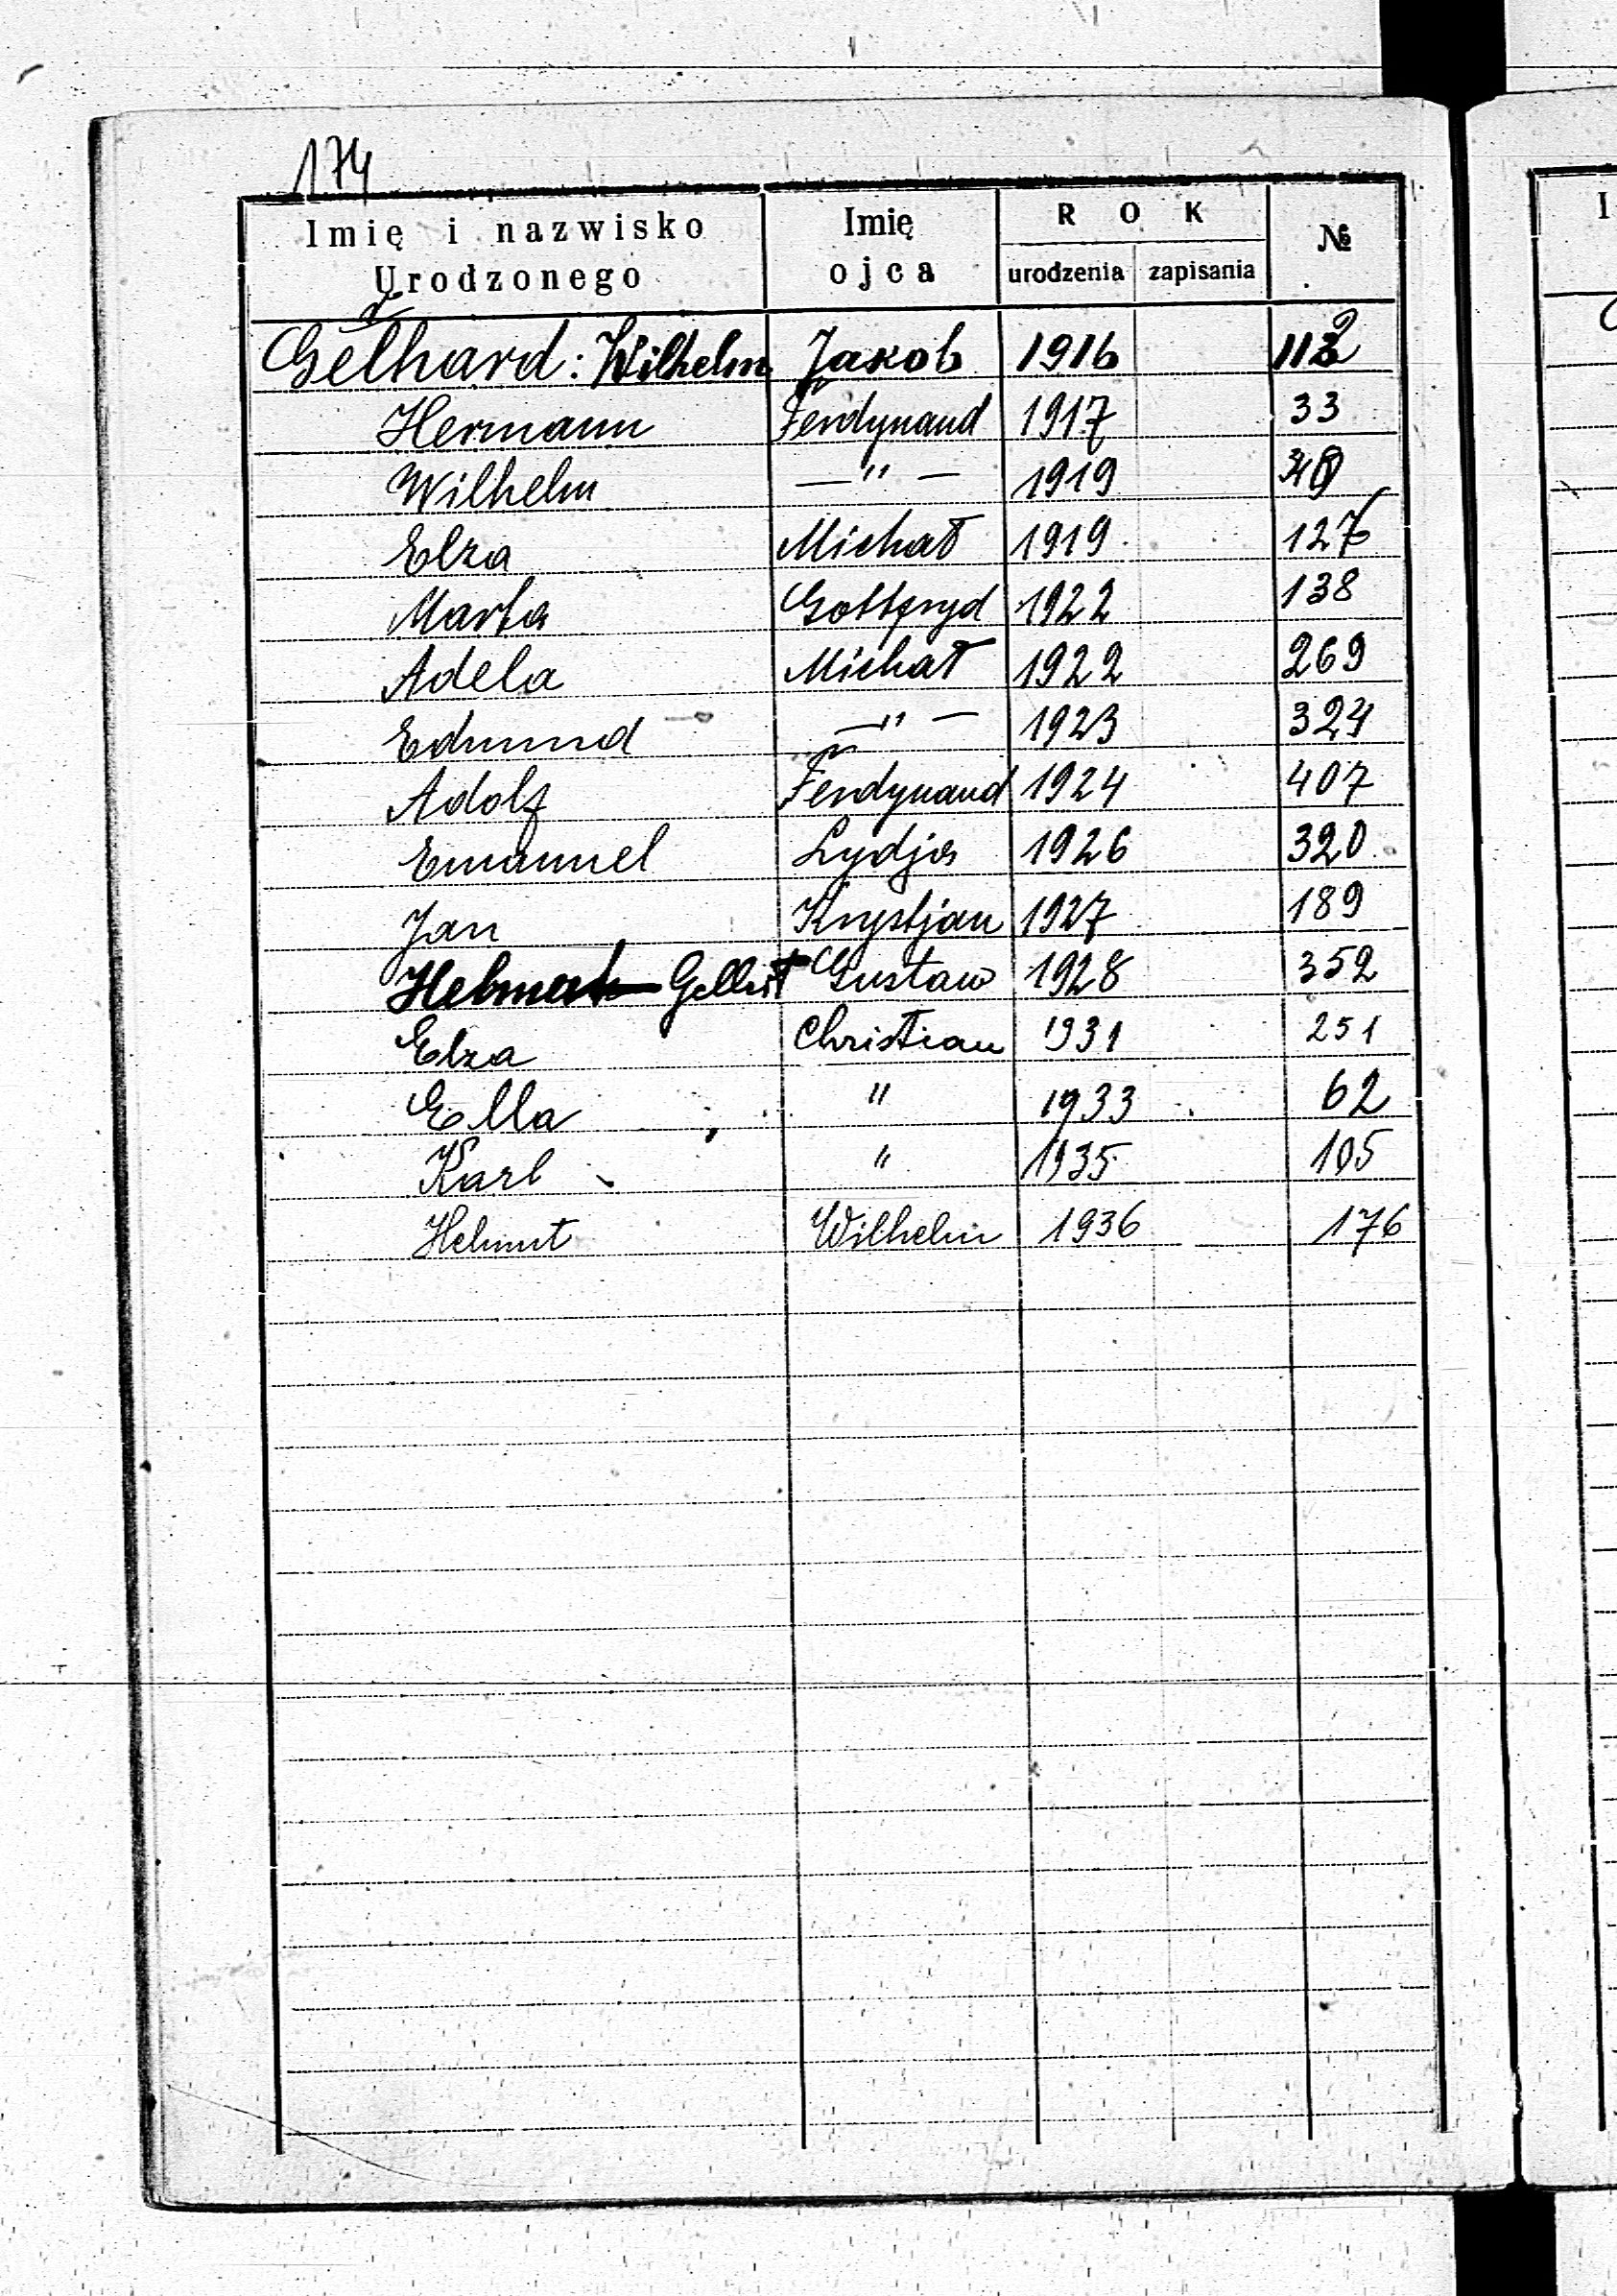 174
Imię i nazwisko Urodzonego Imię ojca ROK urodzenia zapisania №
Gelhard: Wilhelm Jakob 1916 112
Hermann Ferdynand 1917 33
Wilhelm —"— 1919
Elza Michał 1919 127
Marta Gottfryd 1922 138
Adela Michał 1922 269
Edmund —"— 1923 324
Adolf Ferdynand 1924 407
Emanuel Lydja 1926 320
Jan Krystjan 1927 189
Gustaw 1928 352
Elza Christian 1931 251
Ella " 1933 62
Karl " 1935 105
Helmut Wilhelm 1936 176